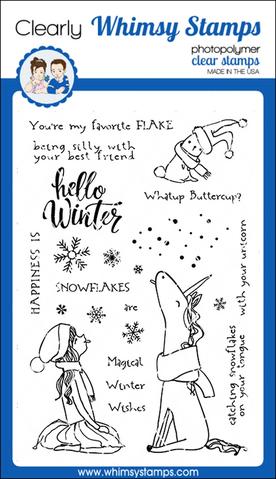 Clearly Whimsy Stamps
photopolymer
clear stamps
MADE IN THE USA
You're my favorite FLAKE
being silly with
your best friend
hello
Winter
Whatup Buttercup?
HAPPINESS IS
SNOWFLAKES
are
with your unicorn
catching snowflakes
on your tongue
Magical
Winter
Wishes
www.whimsystamps.com